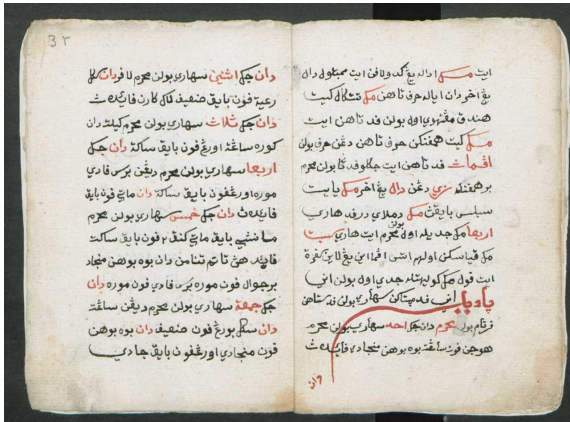 ايت مک اداله يڠ کدولاڤن ايت دال
يڠ اخر دان اياله حرف تاهن مک تتکال کيت
هندق مڠتهوي اول بولن ڤد تاهن ايت
مک کيت همڤنکن حرف تاهن دڠن حرف بولن
ڤد تاهن ايت جکلو ڤد بولن محرم
برهمڤنکن زي دڠن دال يڠ اخر مک يايت
بايقڽ مک دملاي درڤد هاري
اربعا مک جديله اول بولن محرم ايت هاري سبت
مک قياسکن اولهم اتس يڠ لاين
ايت ڤول مک جدي اول بولن اين
باب اين ڤد مڽتاکن سهاري بولن ڤد ستاهن
فرتام بولن محرم دان جک احد سهاري بولن محرم
هوجن ڤون ساڠت بوه بوهن منجادي فايده ث
دان
٣٢
دان جک اثنين سهاري بولن محرم لاڤر دان سکل
رعية ڤون بايق ضعيف فايده ث
دان جک ثلاث سهاري بولن محرم کيلت دان
کوره ساڠت اورڠ ڤون بايق ساکت دان جک
اربعا سهاري بولن محرم ديڠن برس ڤادي
موره اورڠ ڤون بايق ساکت دان ماتي ڤون بايق
فايده ث دان جک خميس سهاري بولن محرم
بايق ماتي ڤون بايق ساکت
فايده تنامن دان بوه بوهن منجاد
برجوال ڤون موره برس ڤادي ڤون موره دان
جک جمعة سهاري بولن محرم ديڠن ساڠت
دان سکل بورڠ ڤون ضعيف دان بوه بوهن
ڤون منجادي اورڠ ڤون بايق جادي